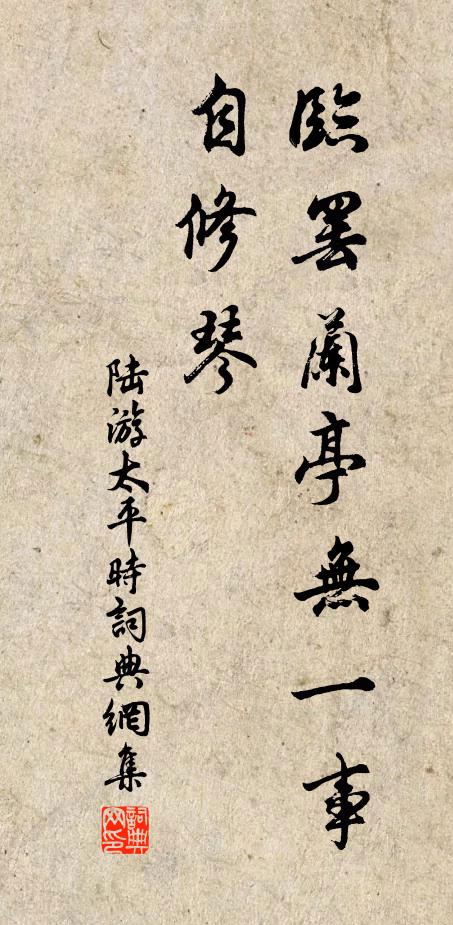 臨罷蘭亭無一事
自修琴
陸游太平時詞典網集
詞典網印